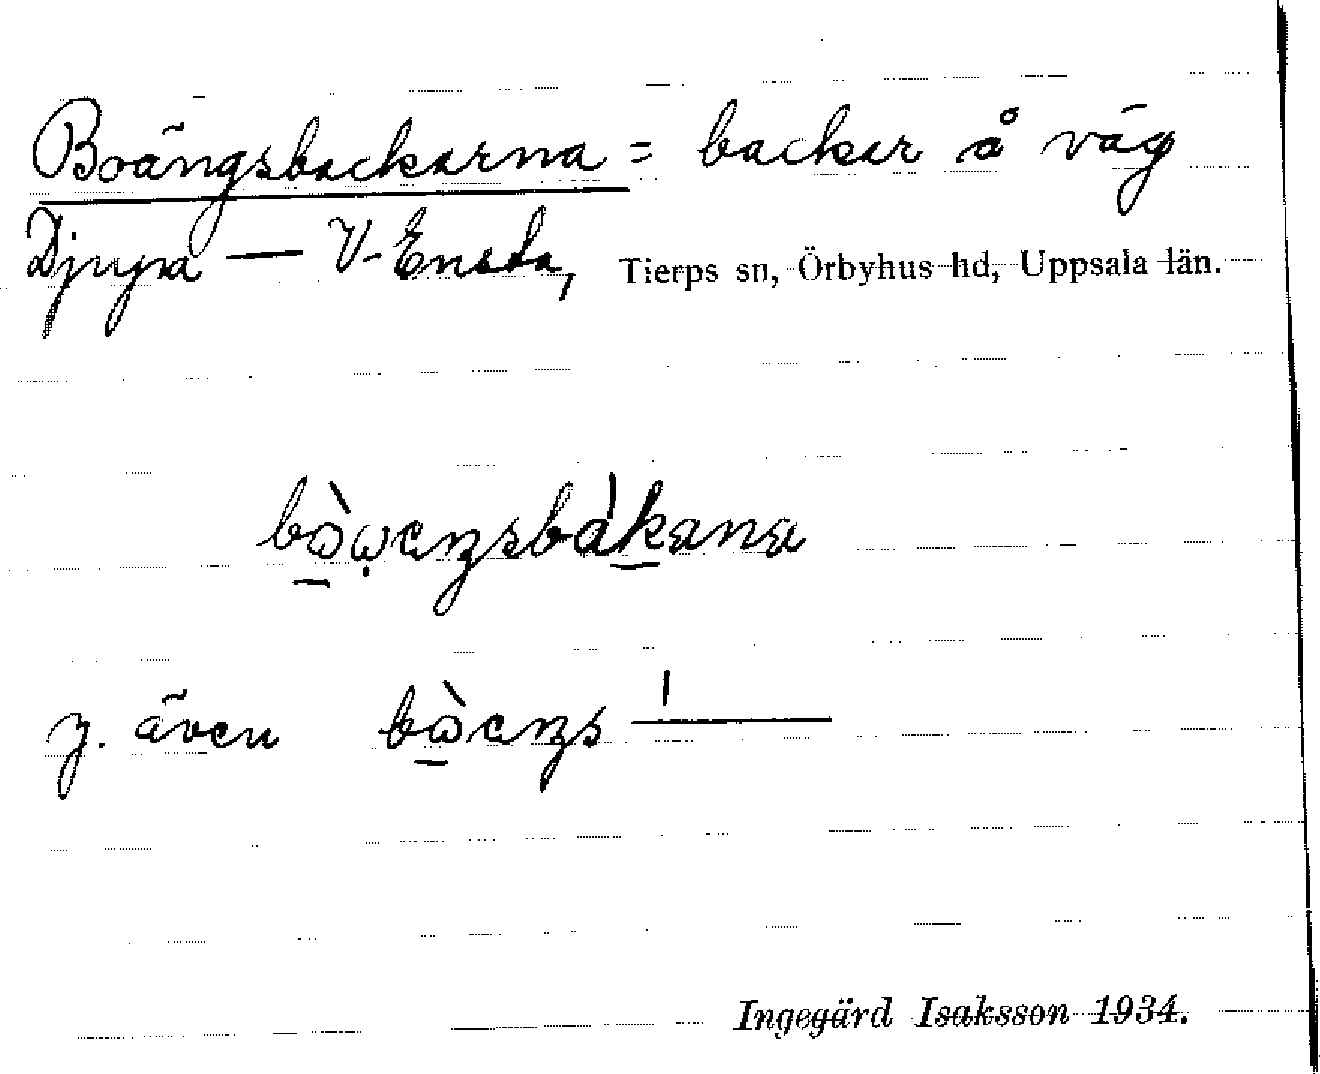 Boängsbackarna = backar å väg
Djupa — V. Ensta, Tierps sn, Örbyhus hd, Uppsala län.
y. även
Ingegärd Isaksson 1934.